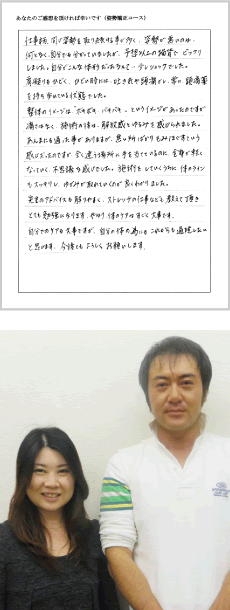 あなたのご感想を頂ければ幸いです（姿勢矯正コース）
仕事柄、同じ姿勢を取り続ける事が多く、姿勢が悪いのは、
何となく自分でも分かっていましたが、予想以上の猫背で ビックリ
しました。自分がこんな体利だったなんて…
肩こりもひどく、ひどい時には、吐き気や頭痛がし、常に頭痛薬
を持ち歩いている状態でした。
整体のイメージは"ボキボキ、バキバキ"、というイメージがあったのですが
痛ではなく、施術の後は、解放感とゆるみを感じられました。
あんまにも通った事がありますが、悪い所ばかりもみほぐすという
感じだったのですが 全く違う場所に手を当てているのに、全身が軽く
なっていく、不思議な感じでした。施術をしていくうちに 体のライン
もスッキリし、ゆがみが取れていくのが良くわかりました。
先生のアドバイスも解りやすく、ストレッチの仕方なども 教えて頂き
とても勉強になります。やはり体のケアはすごく大事です。
自分でのケアも大事ですが、自分の体の為にもこれからも通院したい
と思います。今後ともよろしくお願いします。